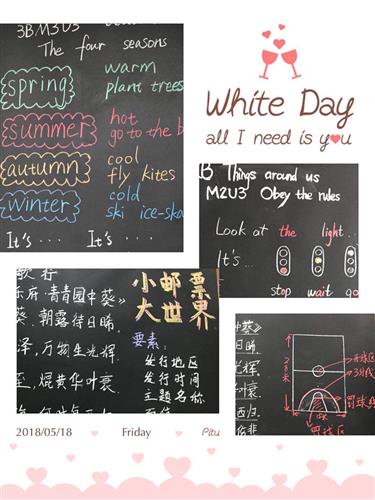 3BM3U3
The four seasons
spring
warm
plant trees
summer
hot
go to the b
autumn
cool
fly kites
winter
cold
ski ice-ska
It's ... It's ...
White Day
all I need is you
B Things around us
M2U3 Obey the rules
Look at the light...
It's...
stop wait go
歌行
乐府·青青园中葵》
葵,朝露待日晞。
泽,万物生光辉。
至,焜黄华叶衰。
小邮票
大世界
要素:
发行地区
发行时间
主题名称
面值
中葵》
日晞。
光辉。
叶衰
西归。
伤悲
28米
开球区
3分线
罚球线
罚球区
2018/05/18 Friday Pitu